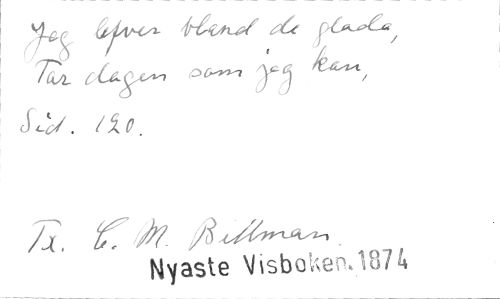 Jag lefver bland de glada,
Tar dagen som jag kan,
Sid. 120.
Tx. C. M. Bellman.
Nyaste Visboken. 1874